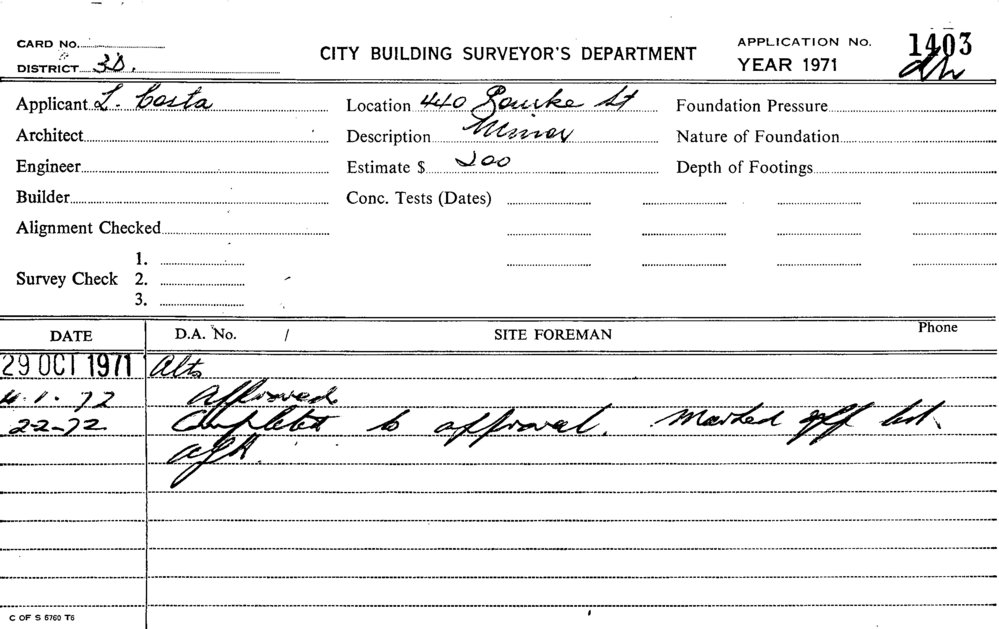 CARD No. APPLICATION No. 1403
DISTRICT 3D. CITY BUILDING SURVEYOR'S DEPARTMENT YEAR 1971
Applicant L. Costa Location 440 Bourke St Foundation Pressure
Architect Description Minor Nature of Foundation
Engineer Estimate $ 200 Depth of Footings
Builder Conc. Tests (Dates)
Alignment Checked
1.
Survey Check 2.
3.
DATE D.A. No. / SITE FOREMAN Phone
29 OCT 1971 Alts
4.1.72 Approved
22-72 Completed to approval. Marked off list.
C OF S 6760 T6